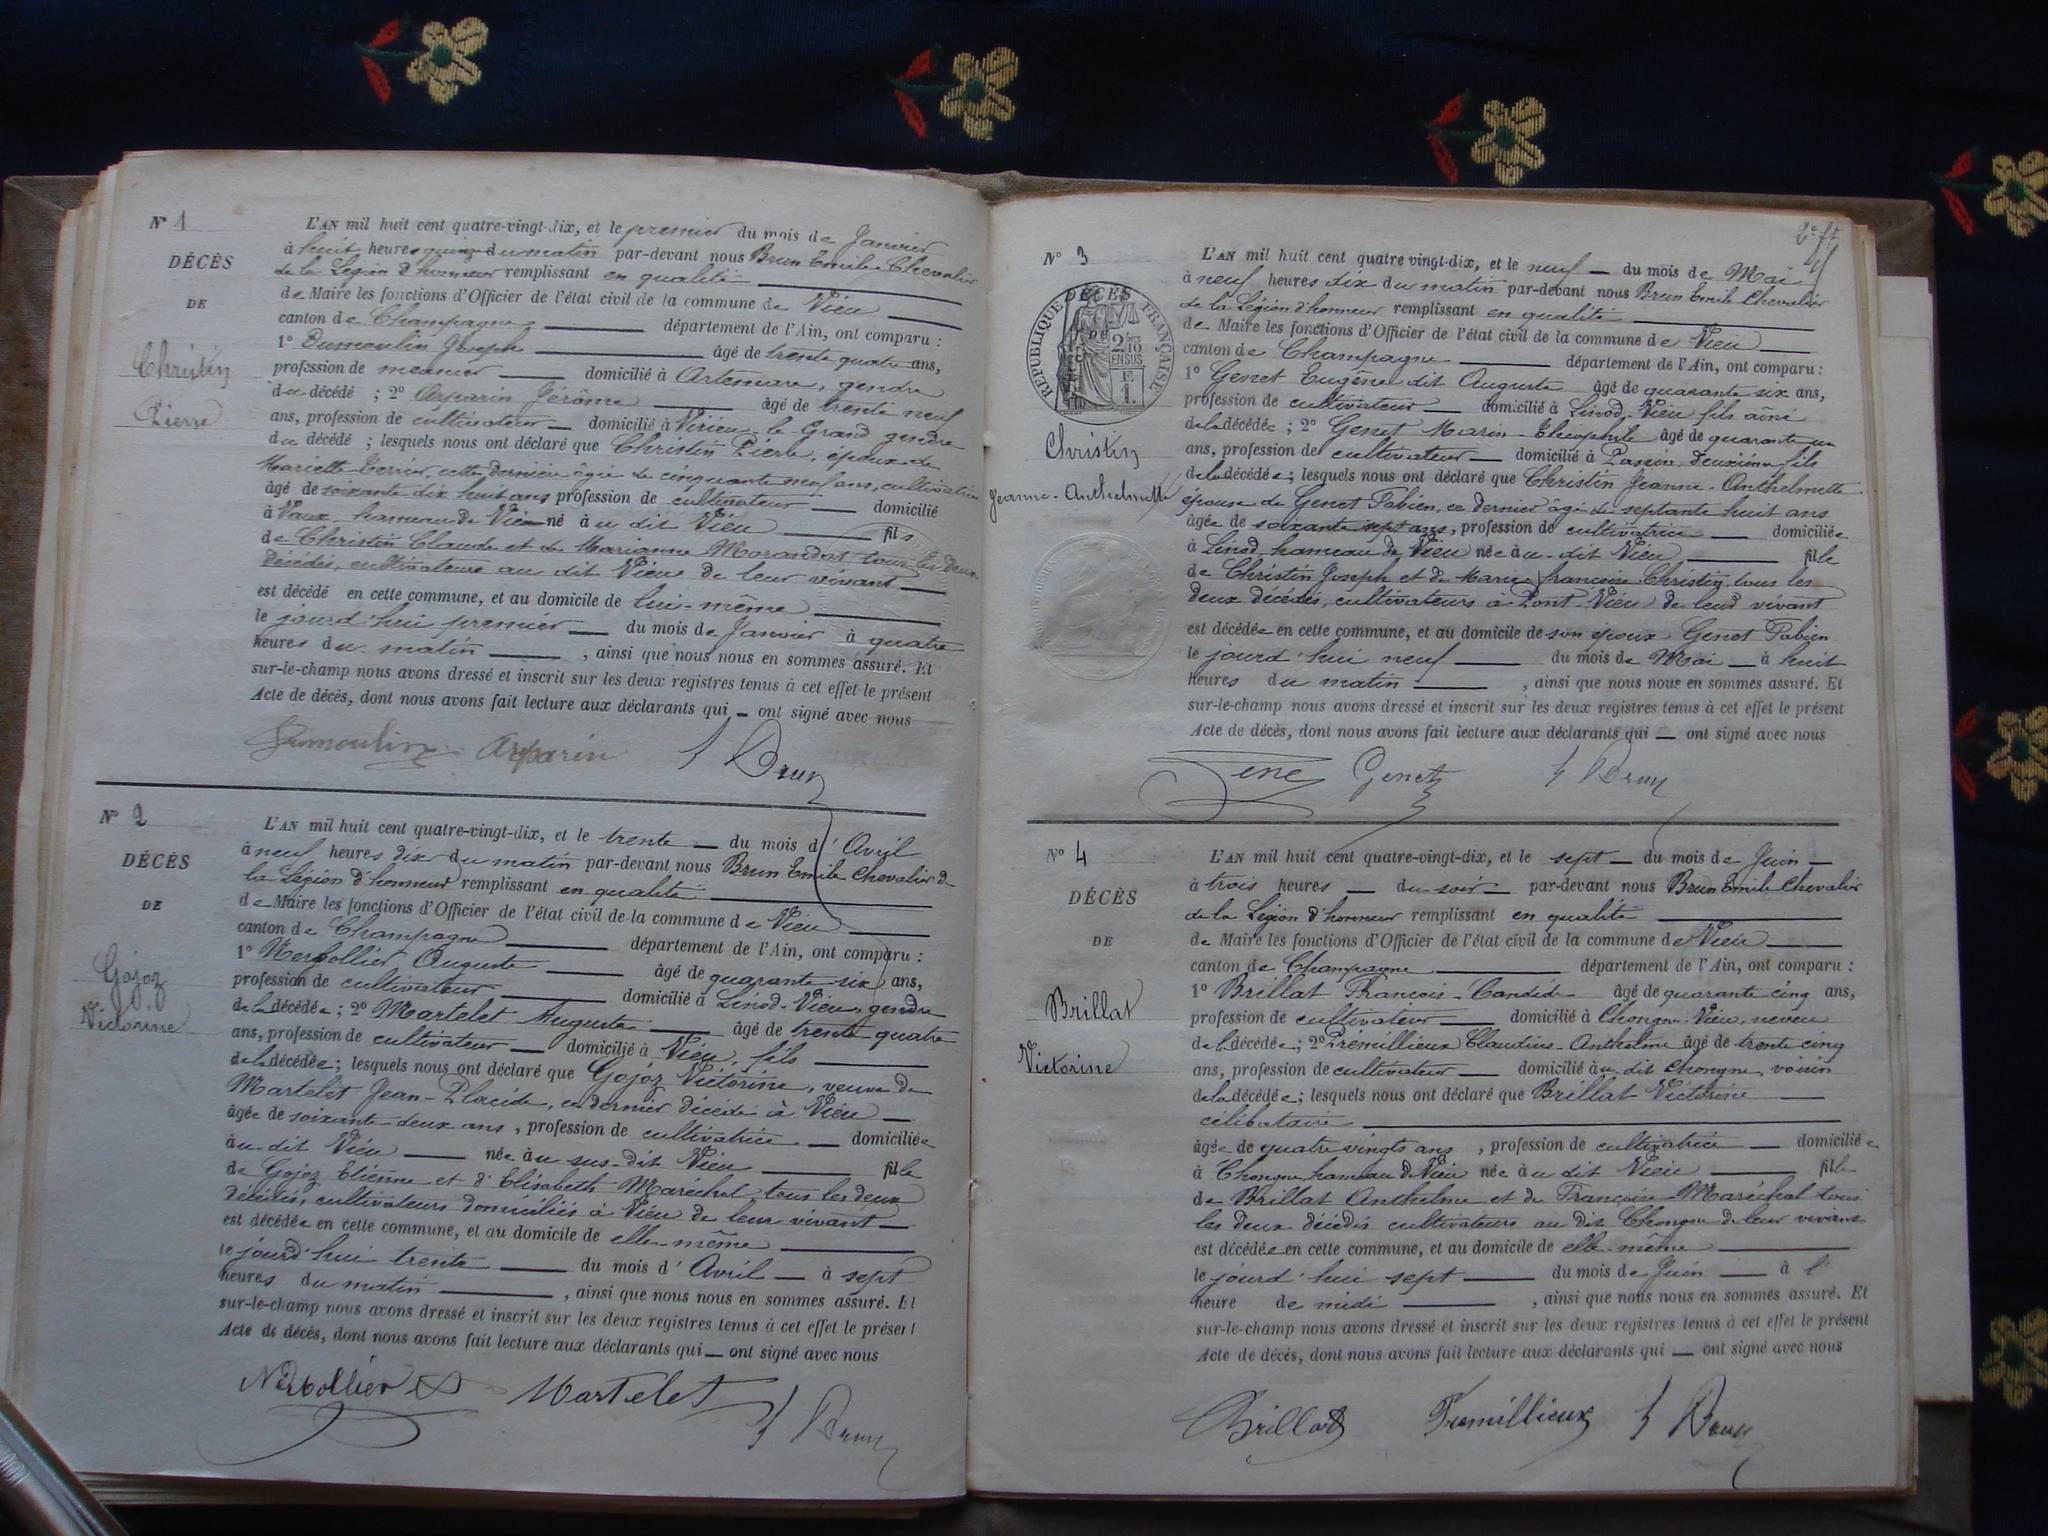 N° 1
DÉCÈS
DE
Christin
Pierre
L'AN mil huit cent quatre-vingt-dix, et le premier du mois de Janvier
à huit heures quinze du matin par-devant nous Brun Emile Chevalier
de la Légion d'honneur remplissant en qualité
de Maire les fonctions d'Officier de l'état civil de la commune de Vieu
canton de Champagne département de l'Ain, ont comparu :
1° Dumoulin Joseph âgé de trente quatre ans,
profession de meunier domicilié à Artemare, gendre
du décédé ; 2° Arparin Jérôme âgé de trente neuf
ans, profession de cultivateur domicilié à Virieu-le-Grand gendre
du décédé ; lesquels nous ont déclaré que Christin Pierre, époux de
Mariette Terrier, cette dernière âgée de cinquante neuf ans, cultivatrice
âgé de soixante dix huit ans profession de cultivateur domicilié
à Vaux, hameau de Vieu né à u dit Vieu fils
de Christin Claude et de Marianne Morandat tous les deux
décédés, cultivateurs au dit Vieu de leur vivant
est décédé en cette commune, et au domicile de lui-même
le jourd'hui premier du mois de Janvier à quatre
heures du matin , ainsi que nous nous en sommes assuré. Et
sur-le-champ nous avons dressé et inscrit sur les deux registres tenus à cet effet le présent
Acte de décès, dont nous avons fait lecture aux déclarants qui ont signé avec nous
Dumoulin Arparin E Brun
N° 2
DÉCÈS
DE
Gojoz
Victorine
L'AN mil huit cent quatre-vingt-dix, et le trente du mois d'Avril
à neuf heures dix du matin par-devant nous Brun Emile Chevalier de
la Légion d'honneur remplissant en qualité
de Maire les fonctions d'Officier de l'état civil de la commune de Vieu
canton de Champagne département de l'Ain, ont comparu :
1° Nerbollier Auguste âgé de quarante six ans,
profession de cultivateur domicilié à Linod-Vieu, gendre
de la décédée ; 2° Martelet Auguste âgé de trente quatre
ans, profession de cultivateur domicilié à Vieu, fils
de la décédée ; lesquels nous ont déclaré que Gojoz Victorine, veuve de
Martelet Jean-Placide, ce dernier décédé à Vieu
âgée de soixante deux ans, profession de cultivatrice domiciliée
à u dit Vieu née à u sus-dit Vieu fille
de Gojoz Etienne et d'Elisabeth Maréchal, tous les deux
décédés, cultivateurs domiciliés à Vieu de leur vivant
est décédée en cette commune, et au domicile de elle-même
le jourd'hui trente du mois d'Avril à sept
heures du matin , ainsi que nous nous en sommes assuré. Et
sur-le-champ nous avons dressé et inscrit sur les deux registres tenus à cet effet le présent
Acte de décès, dont nous avons fait lecture aux déclarants qui ont signé avec nous
Nerbollier Martelet E Brun
2e ft
N° 3
DÉCÈS
DE
RÉPUBLIQUE FRANÇAISE
2/10 EN SUS
F. 1.
Christin
Jeanne-Anthelmette
L'AN mil huit cent quatre vingt-dix, et le neuf du mois de Mai
à neuf heures dix du matin par-devant nous Brun Emile Chevalier
de la Légion d'honneur remplissant en qualité
de Maire les fonctions d'Officier de l'état civil de la commune de Vieu
canton de Champagne département de l'Ain, ont comparu :
1° Genet Eugène dit Auguste âgé de quarante six ans,
profession de cultivateur domicilié à Linod-Vieu fils aîné
de la décédée ; 2° Genet Marin-Théophile âgé de quarante un
ans, profession de cultivateur domicilié à Passin deuxième fils
de la décédée ; lesquels nous ont déclaré que Christin Jeanne-Anthelmette
épouse de Genet Fabien, ce dernier âgé de septante huit ans
âgée de soixante sept ans, profession de cultivatrice domiciliée
à Linod, hameau de Vieu née à u dit Vieu fille
de Christin Joseph et de Marie françoise Christin, tous les
deux décédés, cultivateurs à Pont-Vieu de leur vivant
est décédée en cette commune, et au domicile de son époux Genet Fabien
le jourd'hui neuf du mois de Mai à huit
heures du matin , ainsi que nous nous en sommes assuré. Et
sur-le-champ nous avons dressé et inscrit sur les deux registres tenus à cet effet le présent
Acte de décès, dont nous avons fait lecture aux déclarants qui ont signé avec nous
Genet Genet E Brun
N° 4
DÉCÈS
DE
Brillat
Victorine
L'AN mil huit cent quatre-vingt-dix, et le sept du mois de Juin
à trois heures du soir par-devant nous Brun Emile Chevalier
de la Légion d'honneur remplissant en qualité
de Maire les fonctions d'Officier de l'état civil de la commune de Vieu
canton de Champagne département de l'Ain, ont comparu :
1° Brillat François-Candide âgé de quarante cinq ans,
profession de cultivateur domicilié à Chongne-Vieu, neveu
de la décédée ; 2° Premillieux Claudius-Anthelme âgé de trente cinq
ans, profession de cultivateur domicilié à u dit Chongne, voisin
de la décédée ; lesquels nous ont déclaré que Brillat Victorine
célibataire
âgée de quatre vingts ans, profession de cultivatrice domiciliée
à Chongne, hameau de Vieu née à u dit Vieu fille
de Brillat Anthelme et de Françoise Maréchal tous
les deux décédés cultivateurs au dit Chongne de leur vivant
est décédée en cette commune, et au domicile de elle-même
le jourd'hui sept du mois de Juin à l'
heure de midi , ainsi que nous nous en sommes assuré. Et
sur-le-champ nous avons dressé et inscrit sur les deux registres tenus à cet effet le présent
Acte de décès, dont nous avons fait lecture aux déclarants qui ont signé avec nous
Brillat Premillieux E Brun